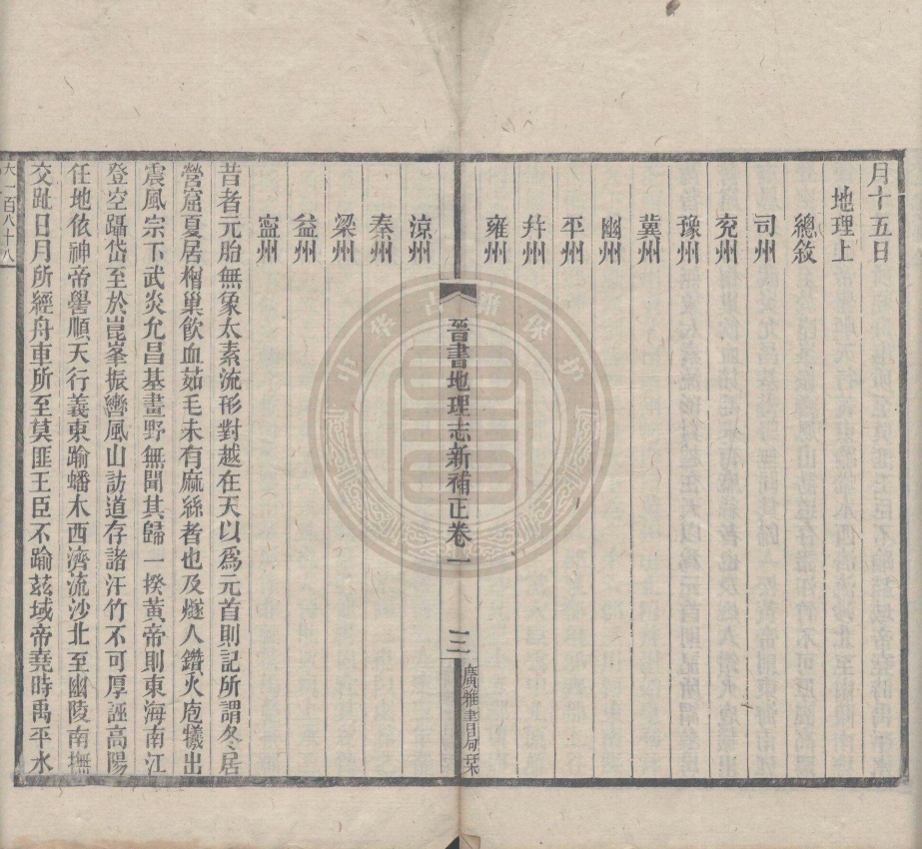 月十五日
地理上
總敘
司州
兗州
豫州
冀州
幽州
平州
幷州
雍州
晉書地理志新補正卷一
三
廣雅書局栞
涼州
秦州
梁州
益州
寧州
昔者元胎無象太素流形對越在天以爲元首則記所謂冬居
營窟夏居橧巢飲血茹毛未有麻絲者也及燧人鑽火庖犧出
震風宗下武炎允昌基畫野無聞其歸一揆黃帝則東海南江
登空躡岱至於崑峯振轡風山訪道存諸汗竹不可厚誣高陽
任地依神帝嚳順天行義東踰蟠木西濟流沙北至幽陵南撫
交趾日月所經舟車所至莫匪王臣不踰茲域帝堯時禹平水
大一百八十八
中华古籍保护